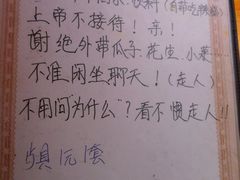 上帝不接待！亲！
谢绝外带瓜子花生小菜
不准闲坐聊天！(走人)
不用问"为什么"？看不惯走人!!
1元1套